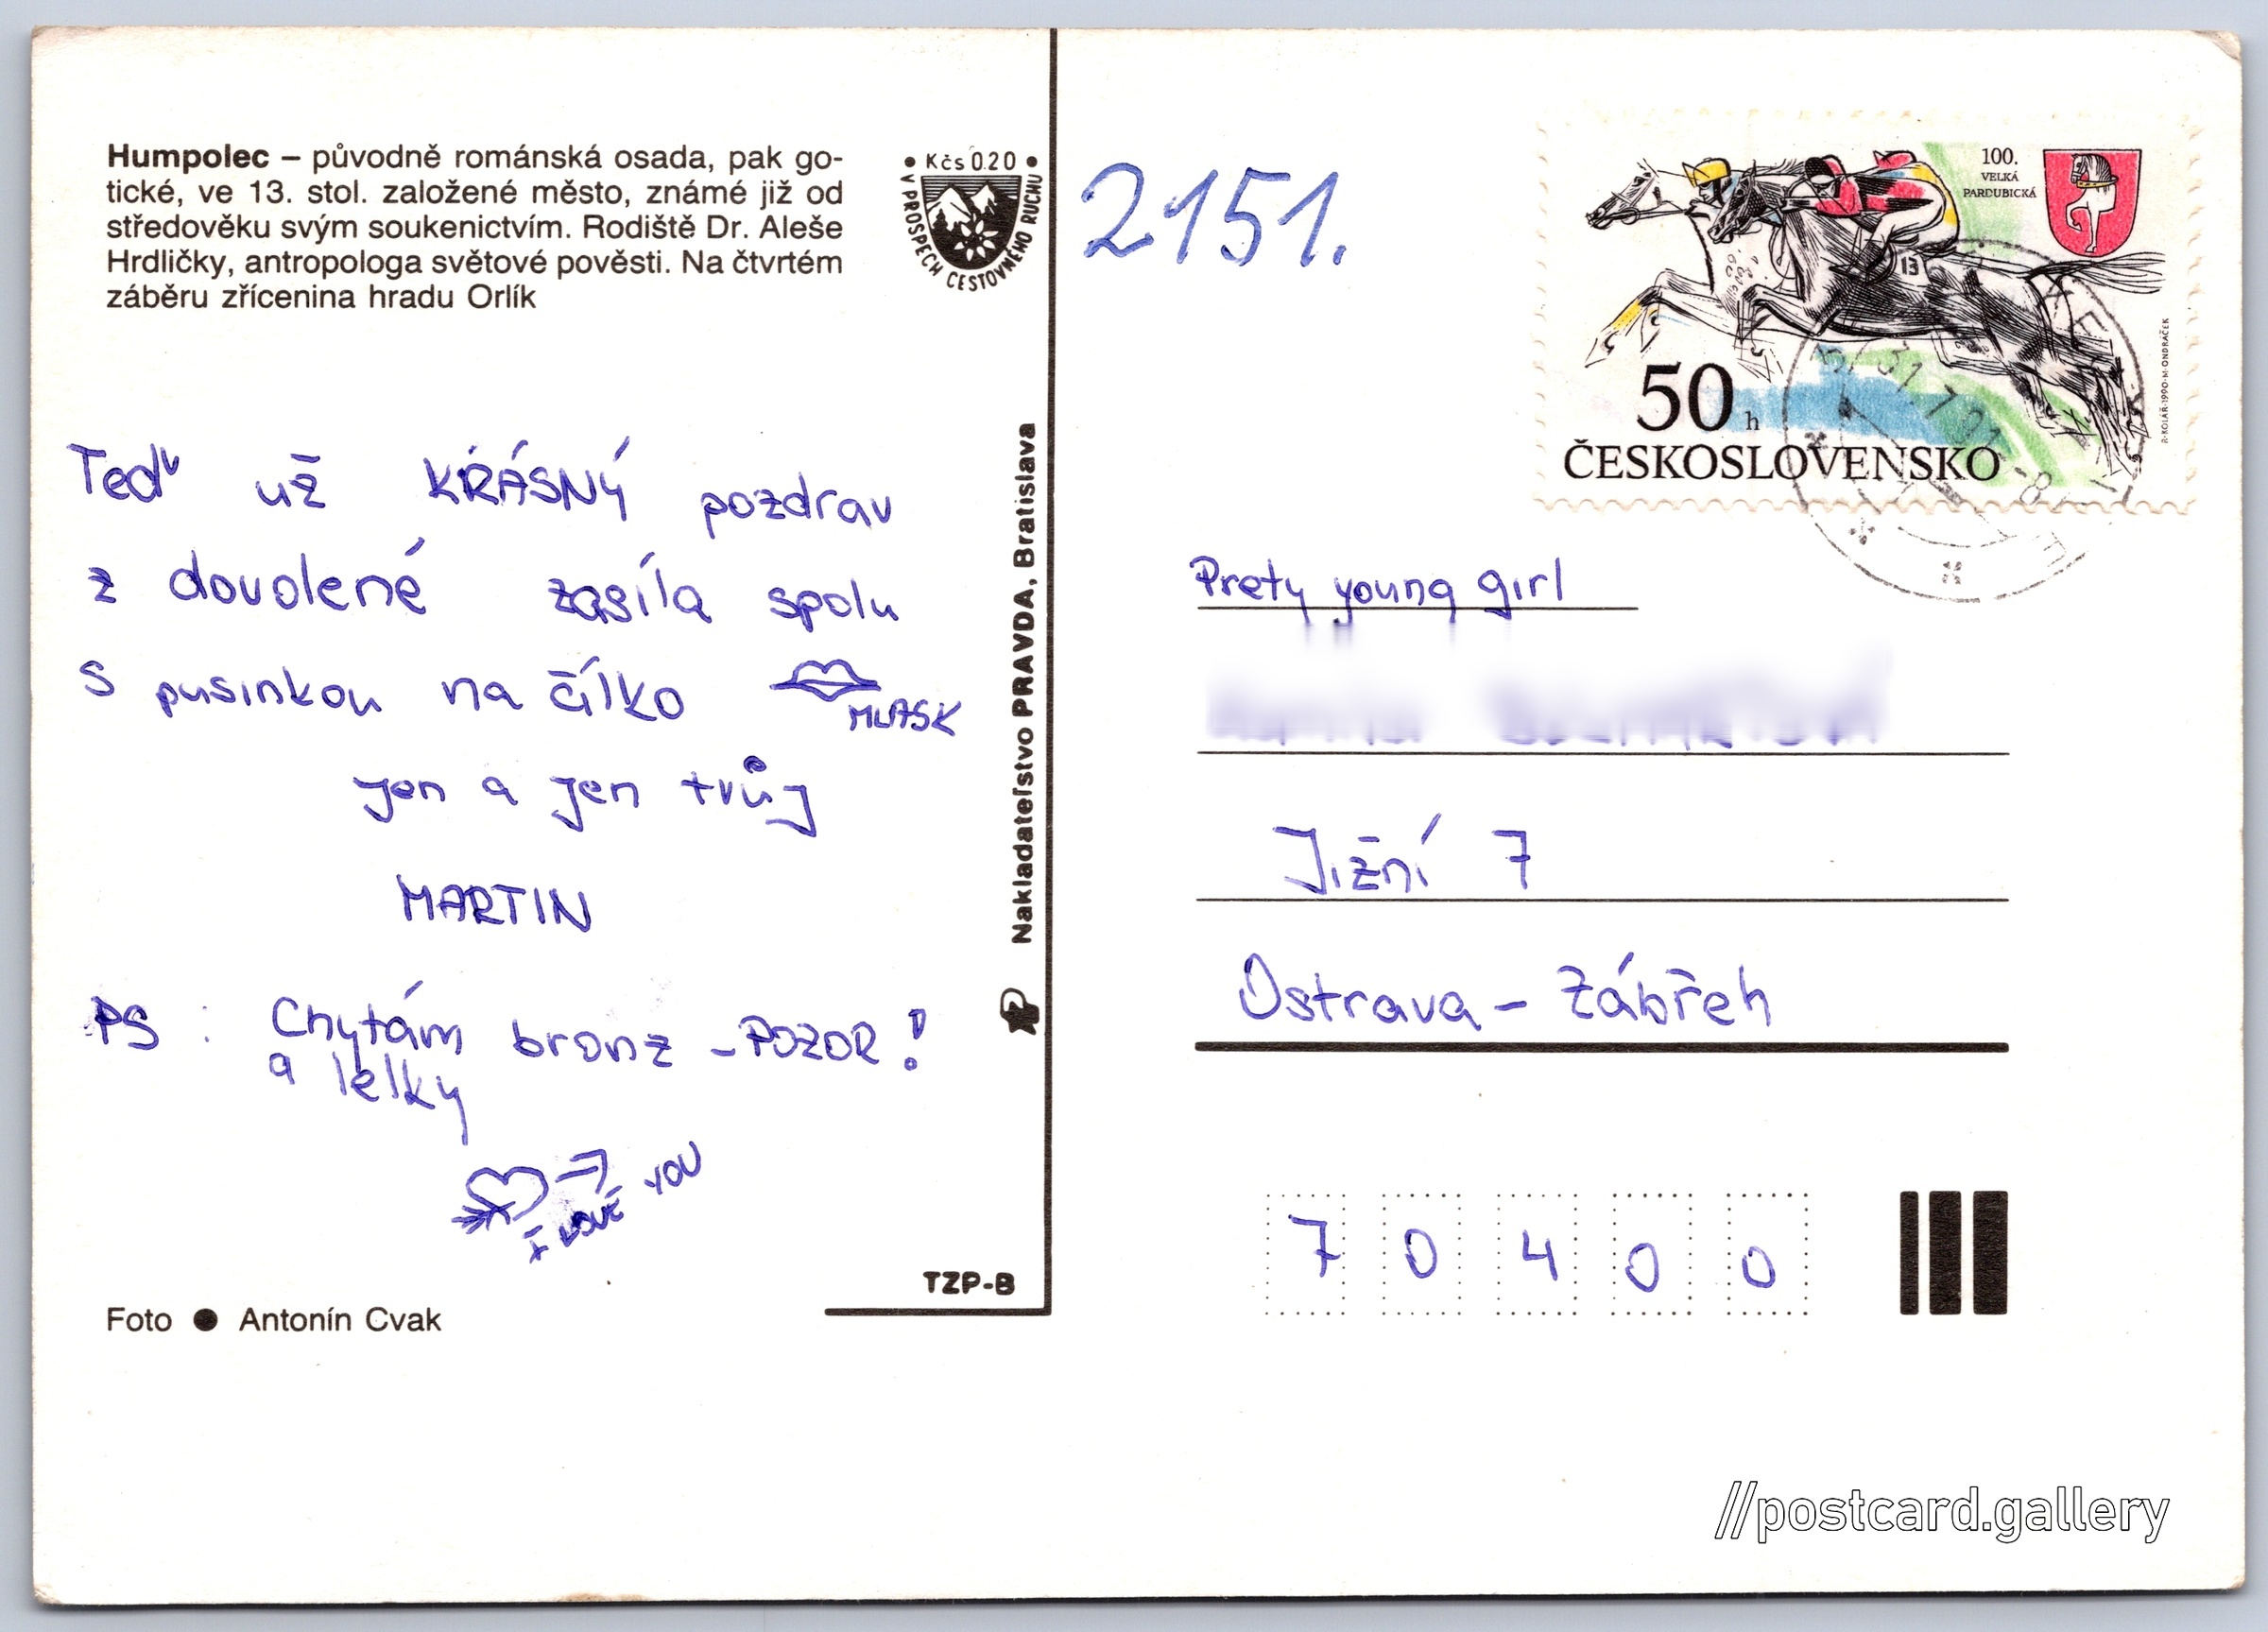 Humpolec – původně románská osada, pak go-
tické, ve 13. stol. založené město, známé již od
středověku svým soukenictvím. Rodiště Dr. Aleše
Hrdličky, antropologa světové pověsti. Na čtvrtém
záběru zřícenina hradu Orlík
• Kčs 0.20 •
V PROSPĚCH CESTOVNÉHO RUCHU
Teď už KRÁSNÝ pozdrav
z dovolené zasíla spolu
s pusinkou na čílko
MLASK
jen a jen tvůj
MARTIN
PS : Chytám bronz – POZOR!
a lelky
I LOVE YOU
Foto ● Antonín Cvak
TZP-B
Nakladateľstvo PRAVDA, Bratislava
2151.
100.
VELKÁ
PARDUBICKÁ
13
50 h
ČESKOSLOVENSKO
R·KOLÁŘ·1990·M·ONDRÁČEK
31.7.91-8
Prety young girl
Jižní 7
Ostrava – Zábřeh
7 0 4 0 0
//postcard.gallery